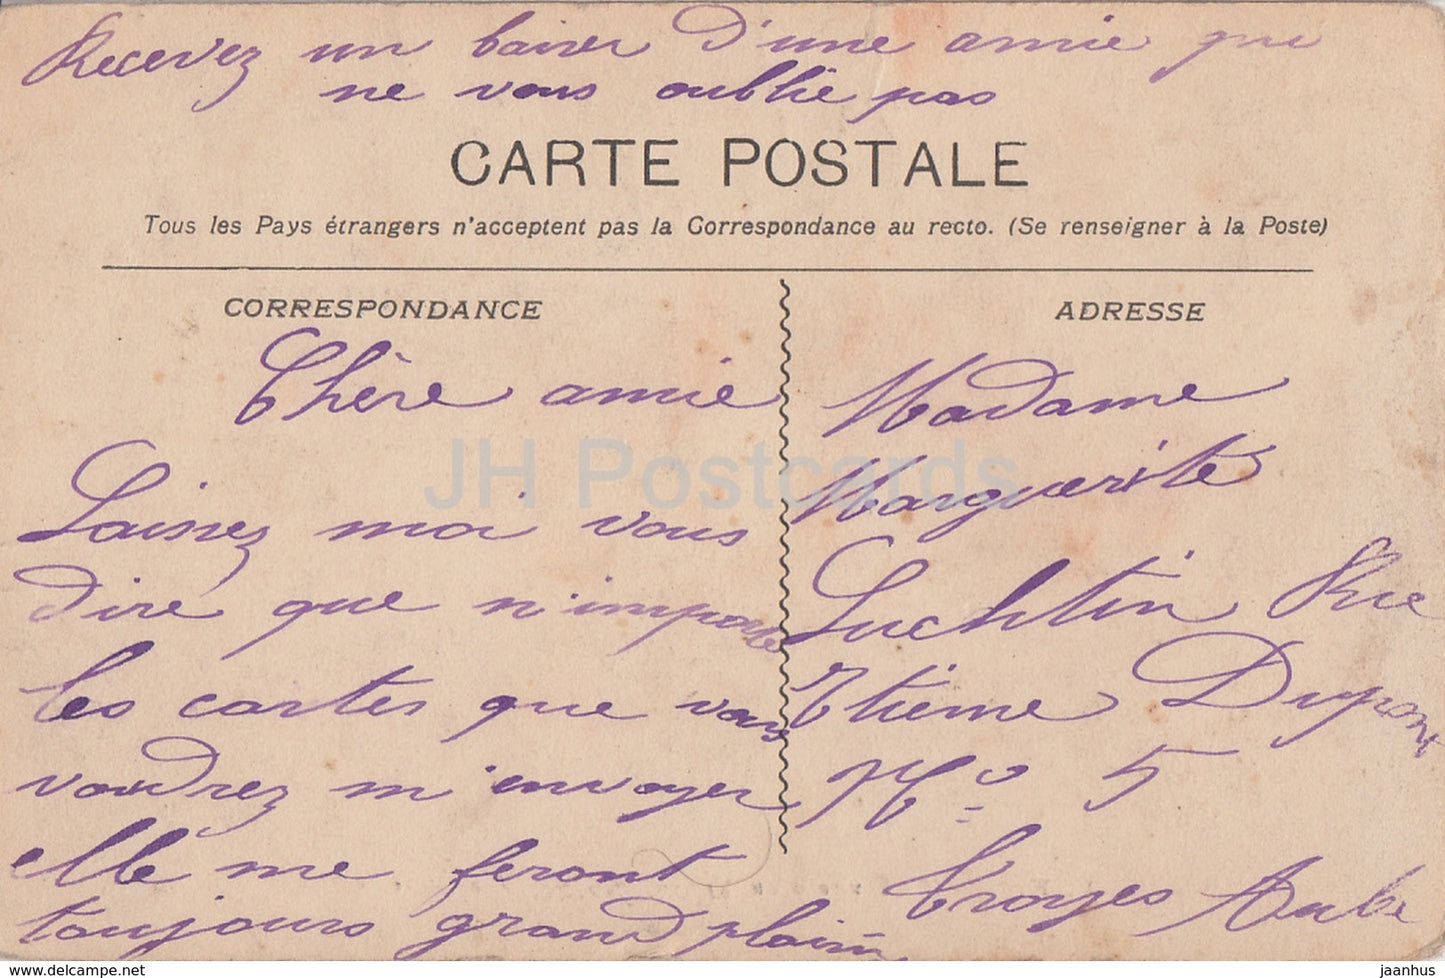 Recevez un baiser d'une amie qui
ne vous oublie pas
CARTE POSTALE
Tous les Pays étrangers n'acceptent pas la Correspondance au recto. (Se renseigner à la Poste)
CORRESPONDANCE
Chère amie
Laissez moi vous
dire que n'importe
les cartes que vous
voudrez m'envoyer
elle me feront
toujours grand plaisir
ADRESSE
Madame
Marguerite
Luchtin Rue
Etienne Dupont
No 5
Troyes Aube
JH Postcards
delcampe.net
jaanhus